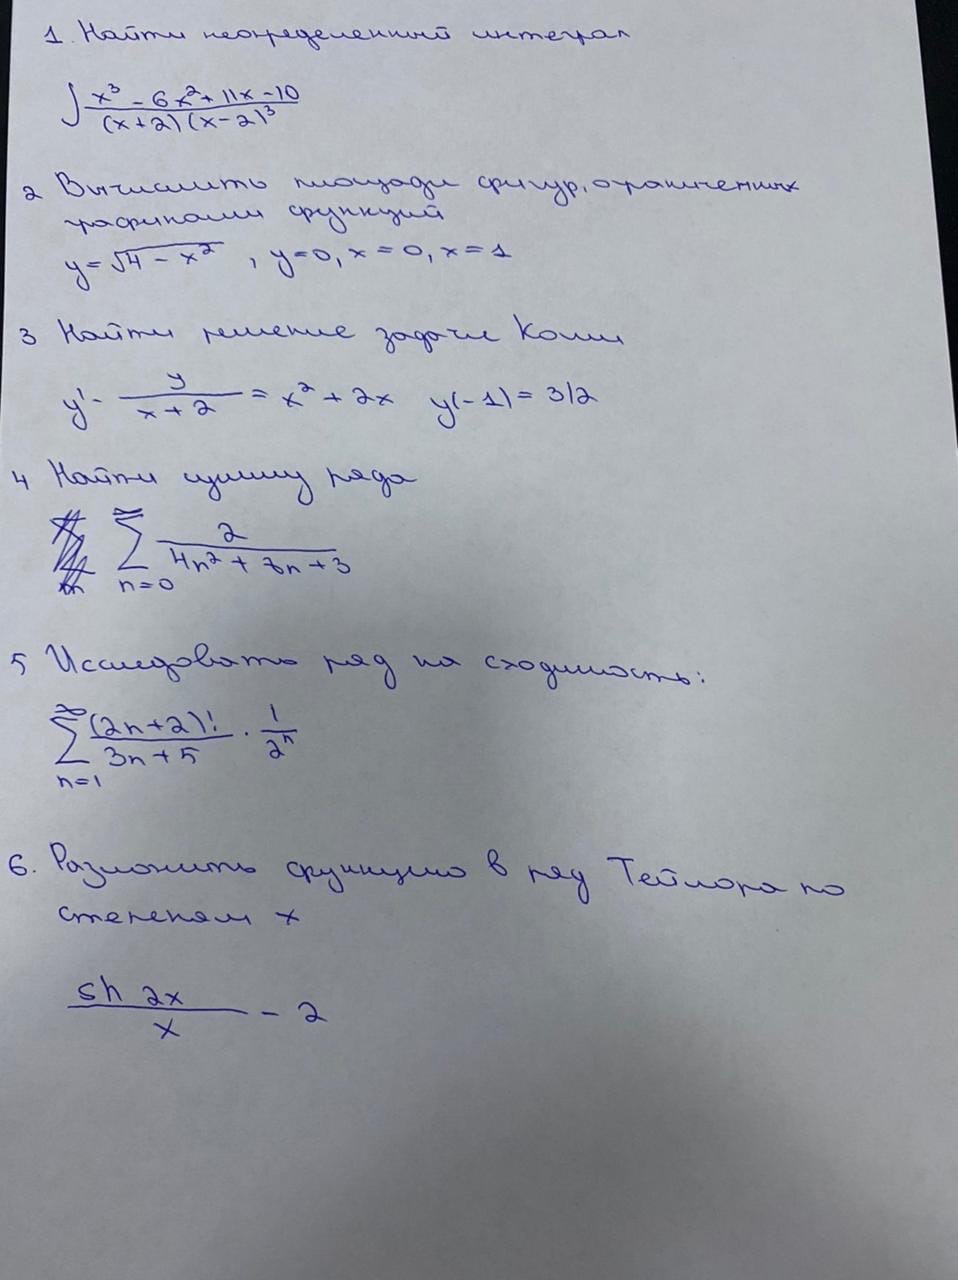 1. Найти неопределенный интеграл
∫ x³ - 6x² + 11x - 10 / (x+2)(x-2)³
2 Вычислить площади фигур, ограниченных
графиками функций
y = √4 - x² , y=0, x=0, x=1
3 Найти решение задачи Коши
y' - y / x+2 = x² + 2x y(-1) = 3/2
4 Найти сумму ряда
∞ ∑ n=0 2 / 4n² + 8n + 3
5 Исследовать ряд на сходимость:
∞ ∑ n=1 (2n+2)! / 3n+5 · 1 / 2ⁿ
6. Разложить функцию в ряд Тейлора по
степеням x
sh 2x / x - 2